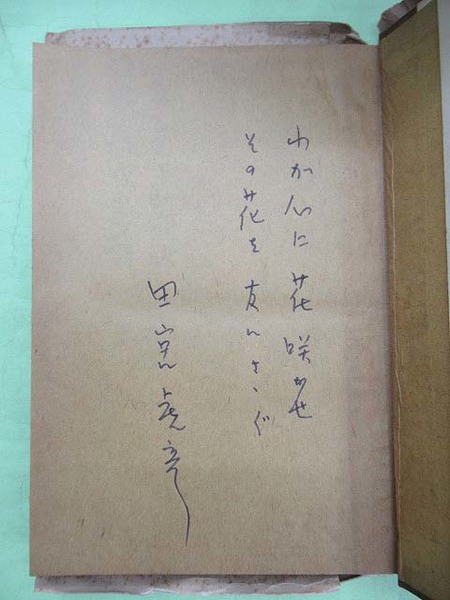 わが心に花咲かせ
その花を友にさゝぐ
田宮虎彦